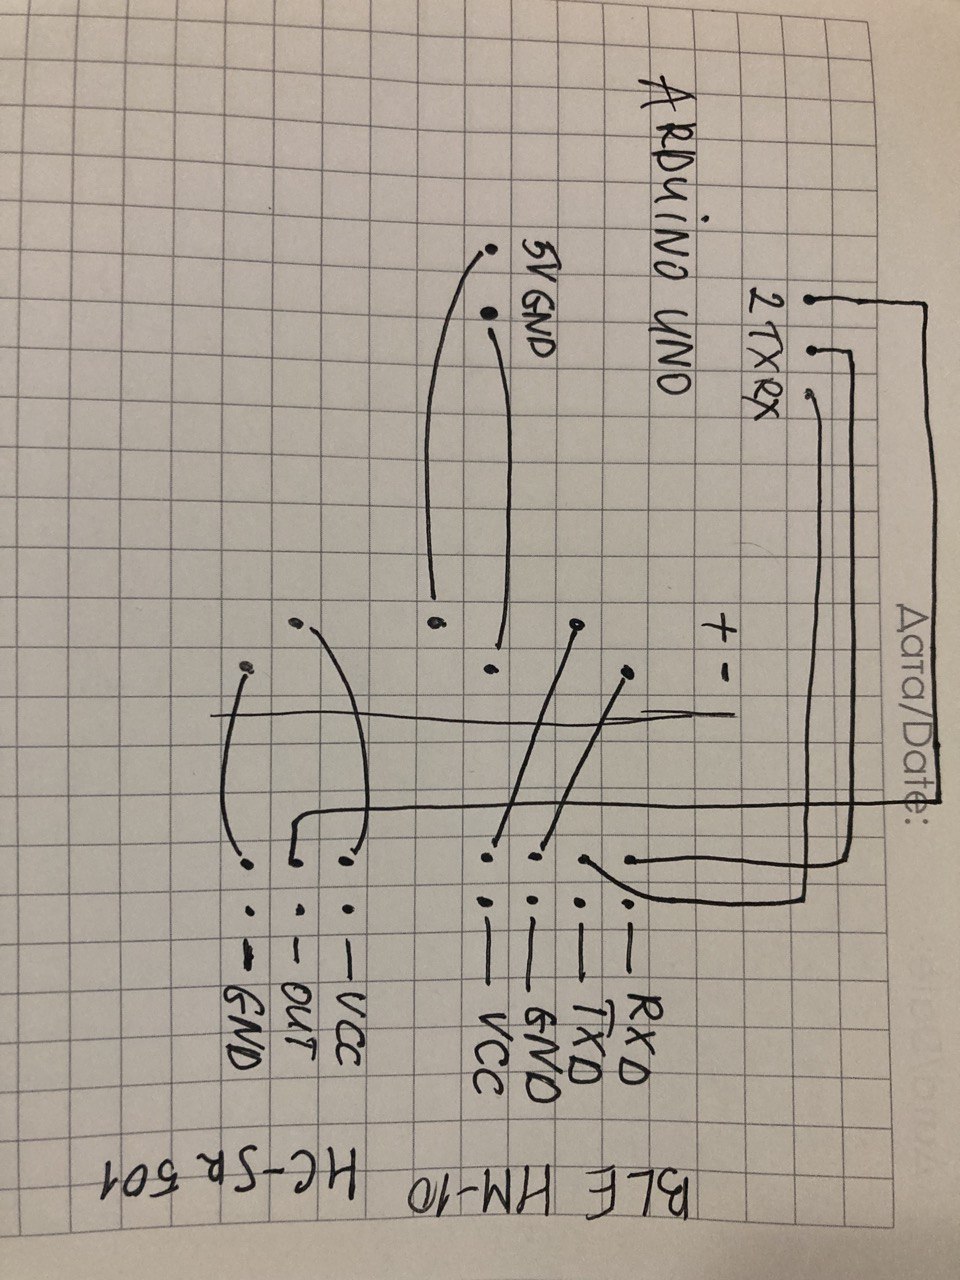 Дата/Date:
2 TX RX
+ -
ARDUiNO UNO
RXD
TXD
GND
VCC
5V GND
BLE HM-10
VCC
OUT
GND
HC-SR 501